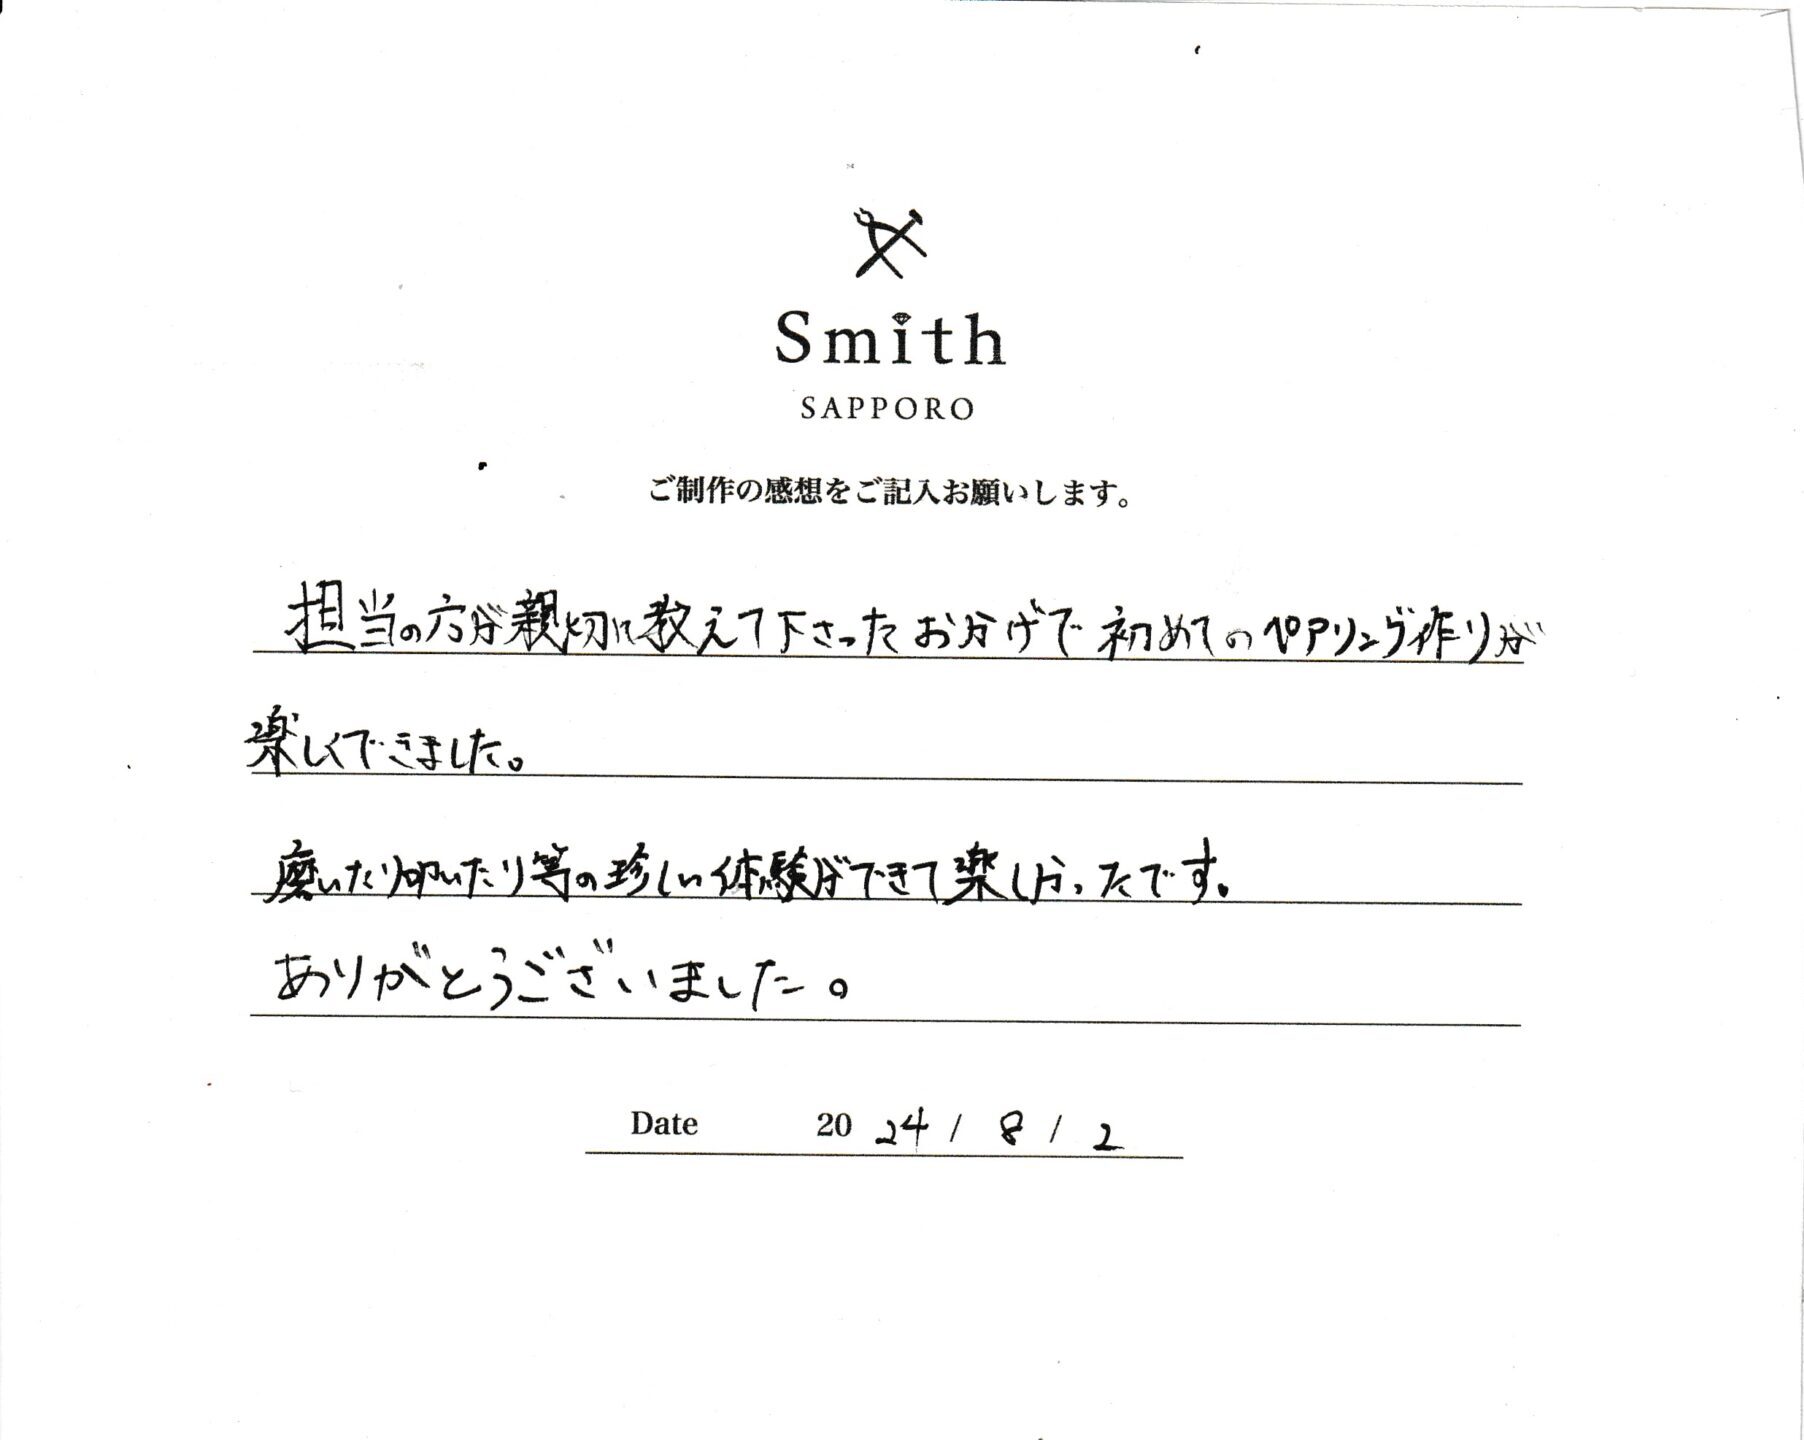 Smith
SAPPORO
ご制作の感想をご記入お願いします。
担当の方が親切に教えて下さったおかげで初めてのペアリング作りが
楽しくできました。
磨いたり叩いたり等の珍しい体験ができて楽しかったです。
ありがとうございました。
Date 2024 / 8 / 2